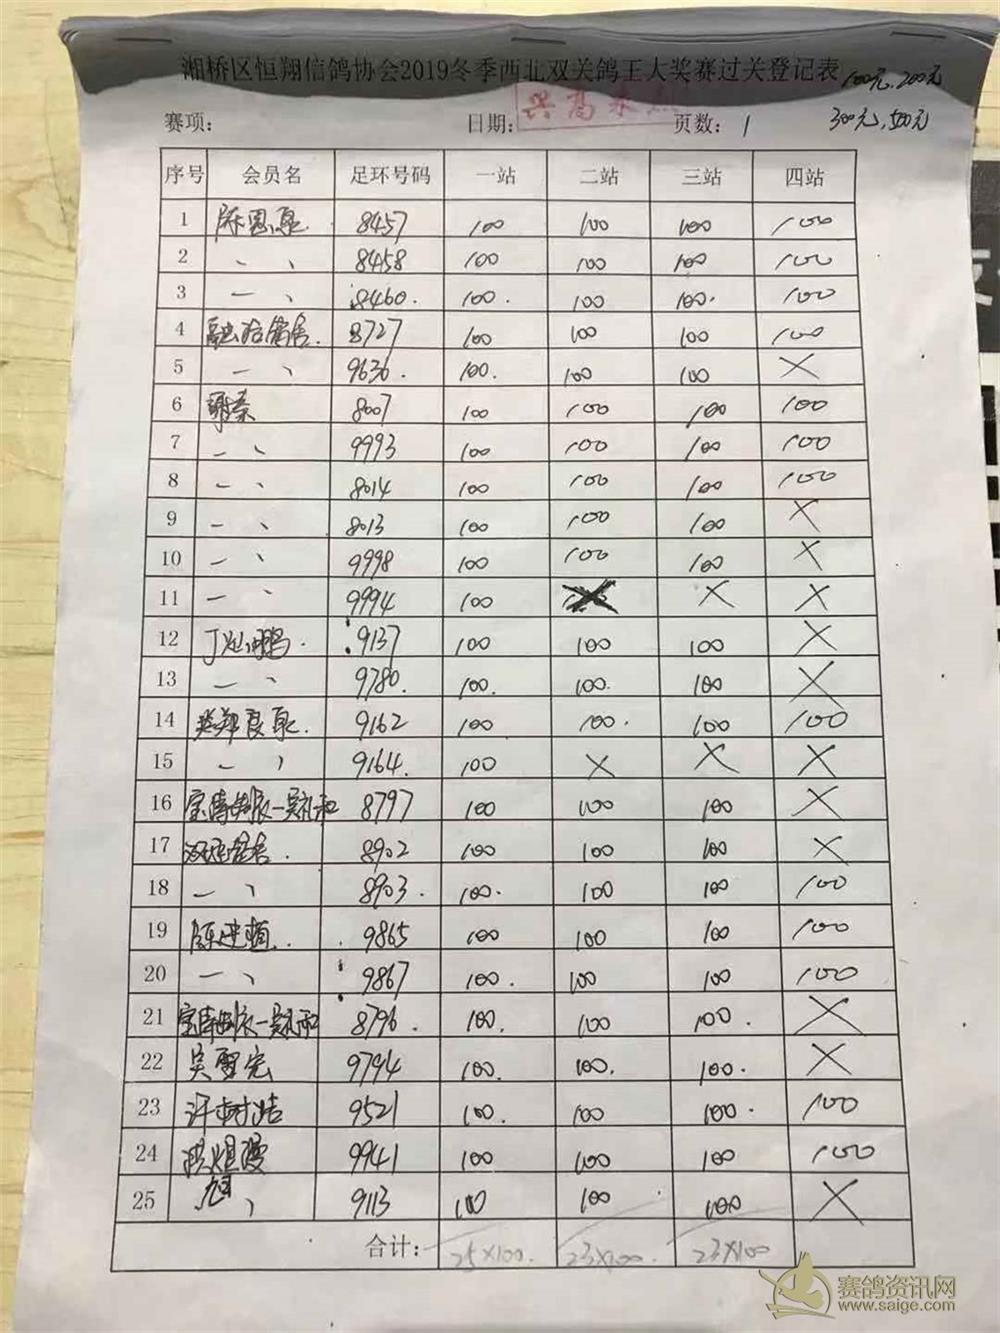 湘桥区恒翔信鸽协会2019冬季西北双关鸽王大奖赛过关登记表 100元,200元
赛项: 日期: 页数: 1 300元,500元
序号 会员名 足环号码 一站 二站 三站 四站
1 8457 100 100 100 100
2 〃 8458 100 100 100 100
3 〃 8460. 100. 100 100. 100
4 8727 100 100 100 100
5 〃 9636. 100. 100 100 ×
6 谢泰 8007 100 100 100 100
7 〃 9993 100 100 100 100
8 〃 8014 100 100 100 100
9 〃 8013 100 100 100 ×
10 〃 9998 100 100 100 ×
11 〃 9994 100 × × ×
12 9137 100 100 100 ×
13 〃 9780. 100. 100. 100 ×
14 9162 100 100. 100 100
15 〃 9164. 100 × × ×
16 8797 100 100 100 ×
17 8902 100 100 100 ×
18 〃 8903. 100. 100 100 100
19 陈建植. 9865 100 100 100 100
20 〃 9867 100. 100 100 100
21 8796. 100. 100 100. ×
22 9794 100. 100. 100. ×
23 9521 100. 100 100. 100
24 9941 100 100 100 100
25 9113 100 100 100 ×
合计: 25×100. 23×100. 23×100
赛鸽资讯网
www.saige.com